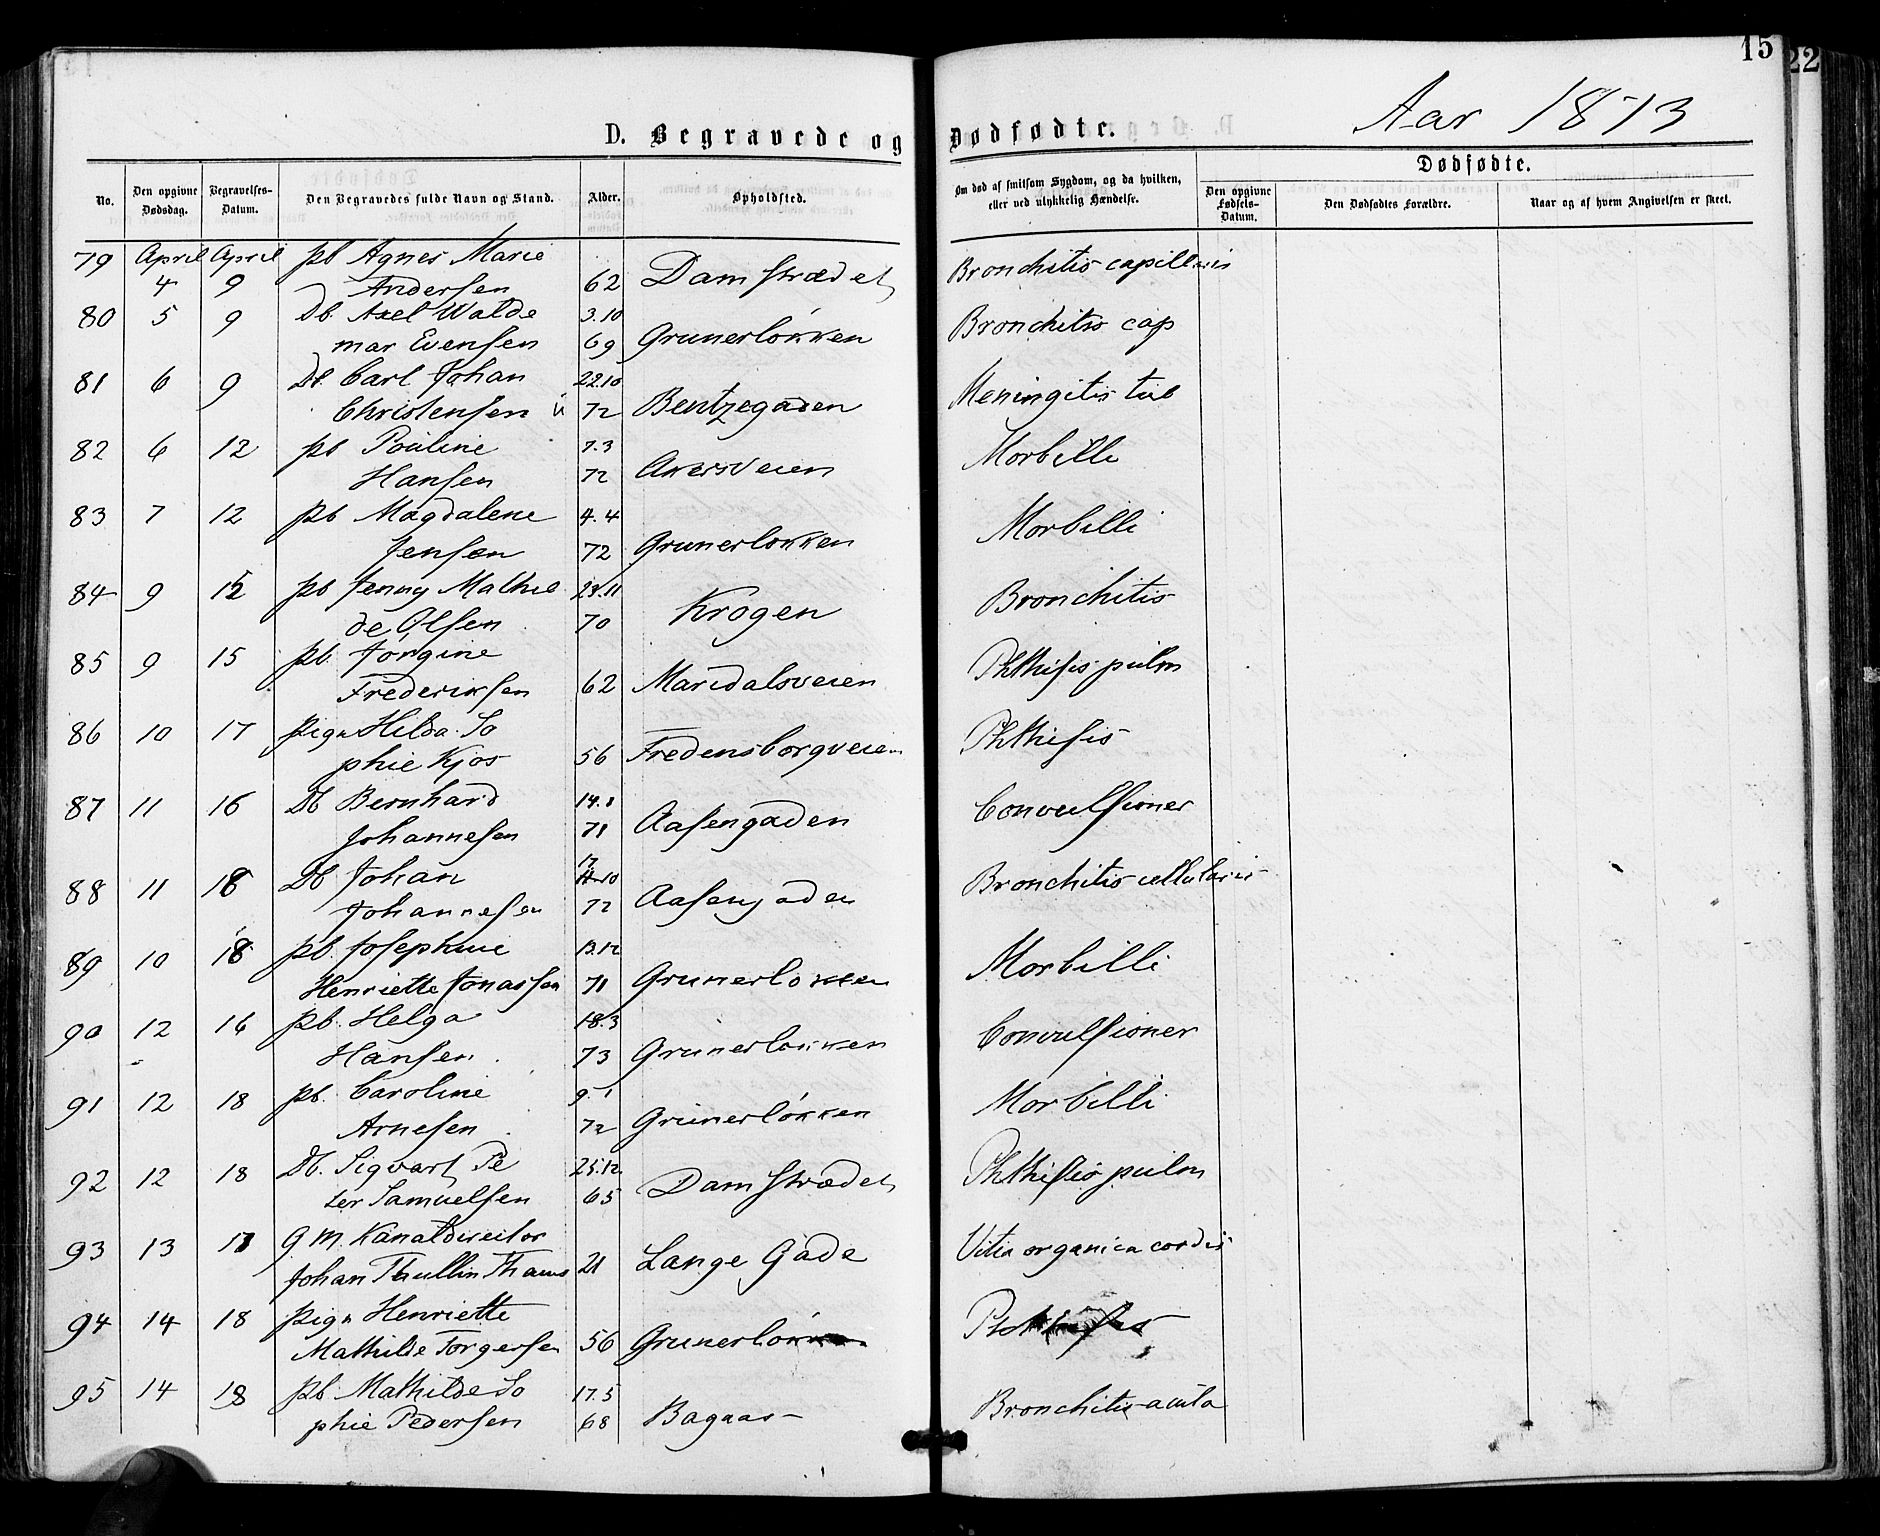 15 22
Aar 1873
D. Begravede og Dødfødte.
No. Den opgivne Dødsdag. Begravelses-Datum. Den Begravedes fulde Navn og Stand. Alder. Opholdsted. Om død af smitsom Sygdom, og da hvilken, eller ved ulykkelig Hændelse. Dødfødte. Den opgivne Fødsels-Datum. Den Dødfødtes Forældre. Naar og af hvem Angivelsen er skeet.
79 April April pb Agnes Marie
4 9 Andersen 62 Damstrædet Bronchitis capillaris
80 5 9 Db. Axel Walde 3.10
mar Evensen 69 Grunerløkken Bronchitis cap
81 6 9 Db. Carl Johan 22.10
Christensen 72 Bentzegaden Meningitis tub
82 6 12 pb Pouline 7.3
Hansen 72 Akersveien Morbilli
83 7 12 pb Magdalene 4.4
Jensen 72 Grunerlokken Morbilli
84 9 12 pb Jenny Mathil 23.11
de Olsen 70 Krogen Bronchitis
85 9 15 pb. Jørgine
Frederiksen 62 Maridalsveien Phthisis pulm
86 10 17 pige Hilda So
phie Kjos 56 Fredensborgveien Phthisis
87 11 16 Db Bernhard 14.8
Johannesen 71 Aasengaden Convulsioner
88 11 18 Db Johan 17 10
Johannesen 72 Aasengaden Bronchitis cellularis
89 10 18 pb. Josephine 13.12
Henriette Jonassen 71 Grunerlokken Morbilli
90 12 16 pb. Helga 18.3
Hansen 73 Grunerlokken Convulsioner
91 12 18 pb. Caroline 9.1
Arnesen 72 Grunerløkken Morbilli
92 12 18 Db. Sigvart Pe 25.12
ter Samuelsen 65 Damstrædet Phthisis pulm
93 13 17 g M. Kanaldirector
Johan Thullin Thams 21 Lange Gade Vitia organica cordis
94 14 18 pige Henriette
Mathilde Torgersen 56 Grunerløkken Phthisis
95 14 18 pb. Mathilde So 17.5
phie Pedersen 68 Bagaas Bronchitis acuta